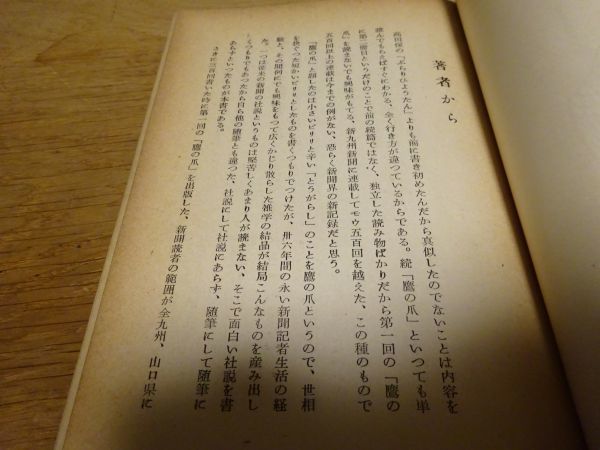 著者から
高田保の「ぶらりひょうたん」よりも前に書き初めたんだから真似したのでないことは内容を
読んでもらえばすぐにわかる、全く行き方が違つているからである。続「鷹の爪」といつても単
に第二冊目というだけのことで前の続篇ではなく、独立した読み物ばかりだから第一回の「鷹の
爪」を読まないでも興味がもてる、新九州新聞に連載してモウ五百回を越えた、この種のもので
五百回以上の連載は今までの例がない、恐らく新聞界の新記録だと思う。
「鷹の爪」と題したのは小さいピリリと辛い「とうがらし」のことを鷹の爪というので、世相
を抉ぐつた短かいピリリとしたものを書くつもりでつけたが、卅六年間の永い新聞記者生活の経
験と、その間何にでも興味をもつて広くかじり散らした雑学の結晶が結局こんなものを産み出し
た。一つは従来の新聞の社説というものは堅苦しくあまり人が読まない、そこで面白い社説を書
くつもりでもあつたから自ら他の随筆とも違つた、社説にして社説にあらず、随筆にして随筆に
あらずといつたものが本書である。
さきに三百回書いた時に第一回の「鷹の爪」を出版した、新聞読者の範囲が全九州、山口県に